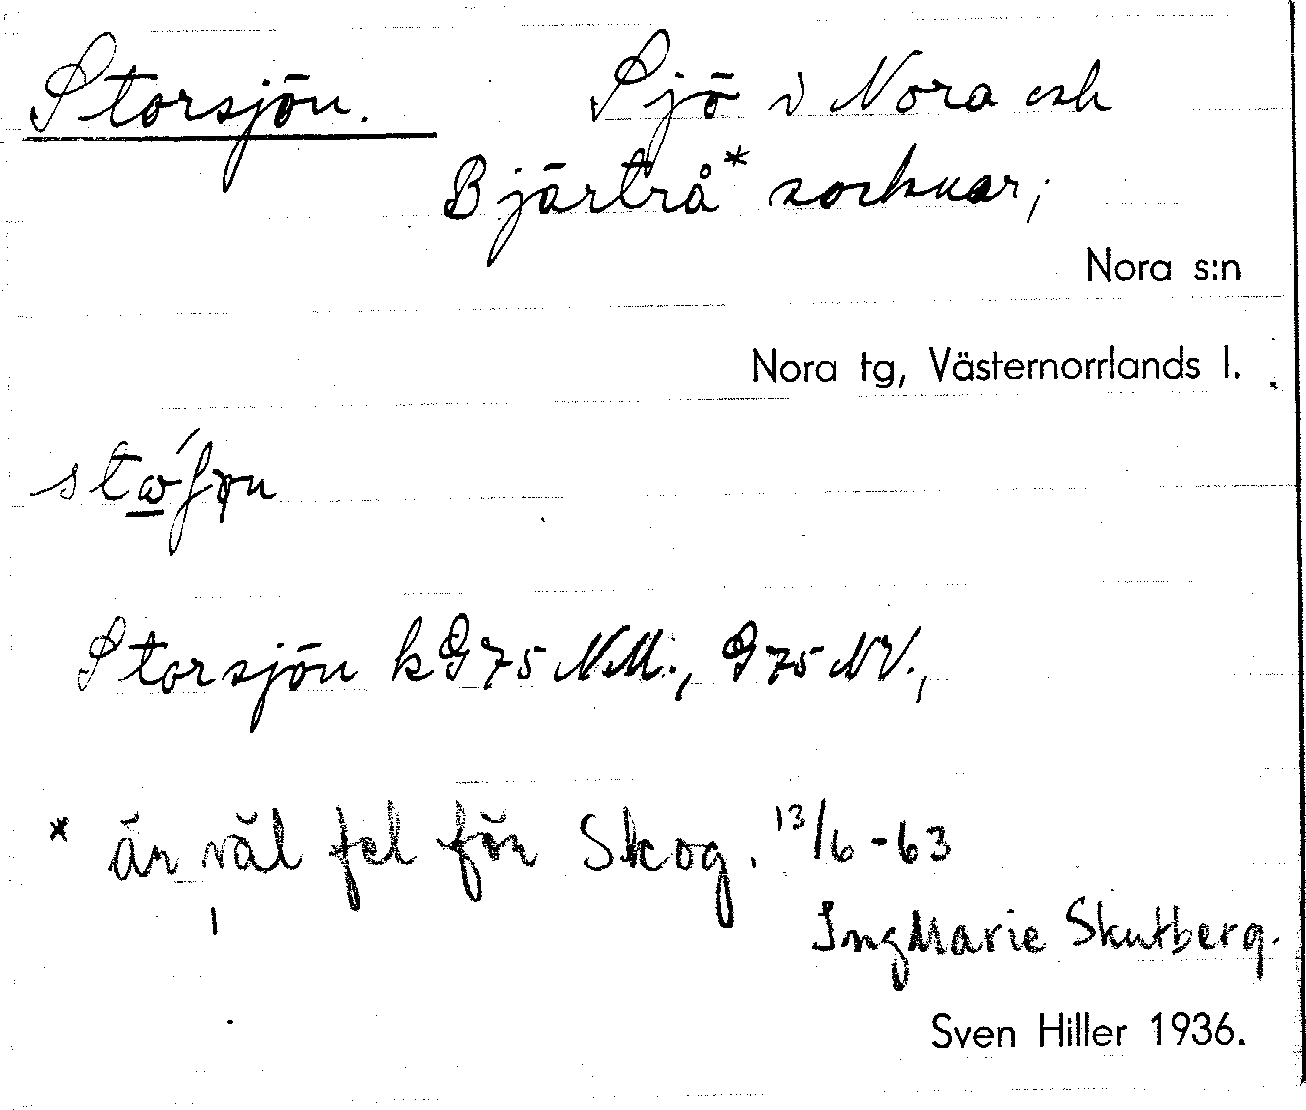 Storsjön. Sjö i Nora och
Bjärtrå* socknar;
Nora s:n
Nora tg, Västernorrlands l.
Storsjön kG75 NM., G75 NV.,
* är väl fel för Skog. 13/6-63
IngMarie Skutberg.
Sven Hiller 1936.